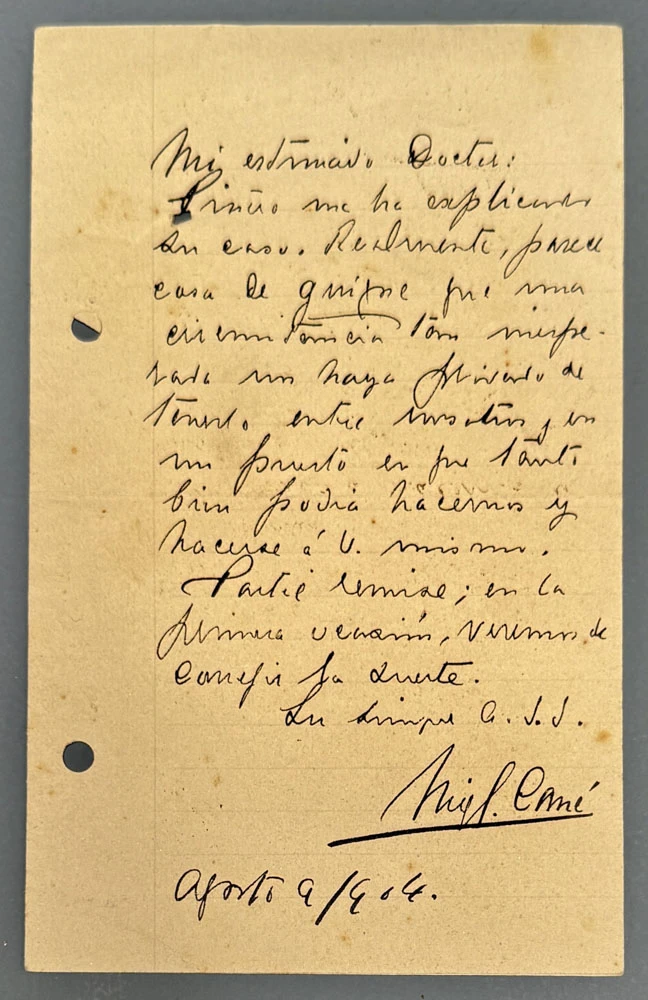 Mi estimado Doctor:
Piñero me ha explicado
su caso. Realmente, parece
cosa de guigne que una
circunstancia tan inespe-
rada nos haya privado de
tenerlo entre nosotros y en
un puesto en que tanto
bien podía hacernos y
hacerse á V. mismo.
Partie remise; en la
primera ocasión, veremos de
corregir la suerte.
Su siempre a. S. S.
Migl. Cané
Agosto 9/904.